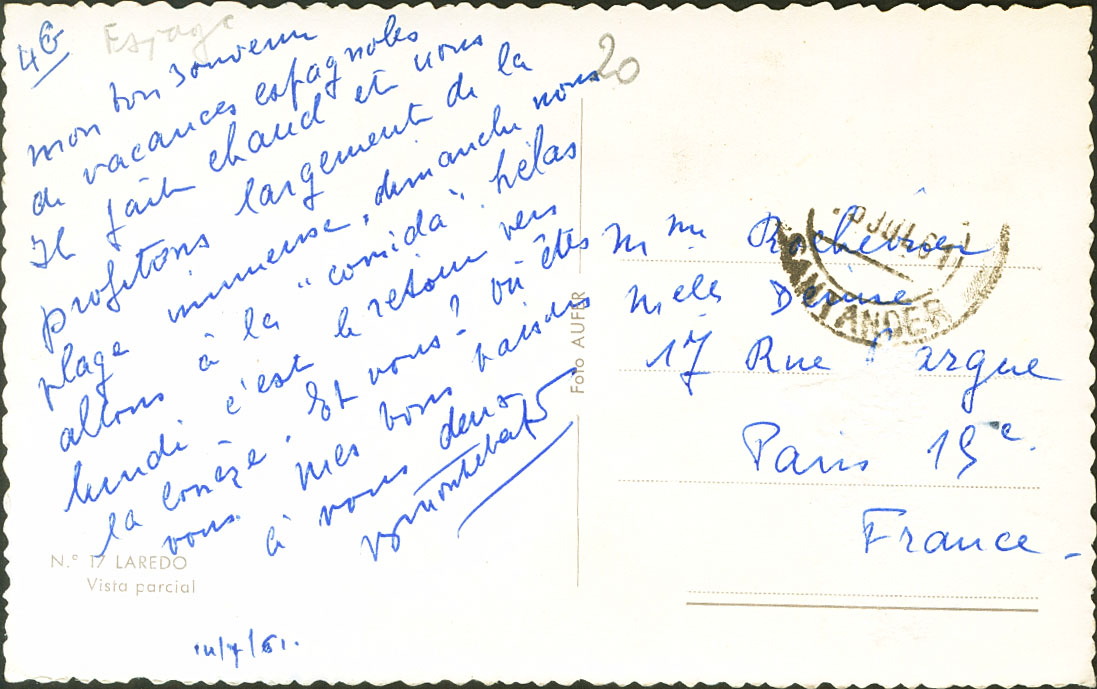 4G
Espagne
20
mon bon souvenir
de vacances espagnoles
Il fait chaud et nous
profitons largement de la
plage immense, dimanche nous
allons à la "corrida". hélas
lundi c'est le retour vers
la Corrèze. Et vous? où êtes
vous. Mes bons baisers
à vous deux
N.° 17 LAREDO
Vista parcial
/7/61.
Foto AUFER
JUL 61
SANTANDER
Mme
Melle Denise
17 Rue argue
Paris 15e.
France